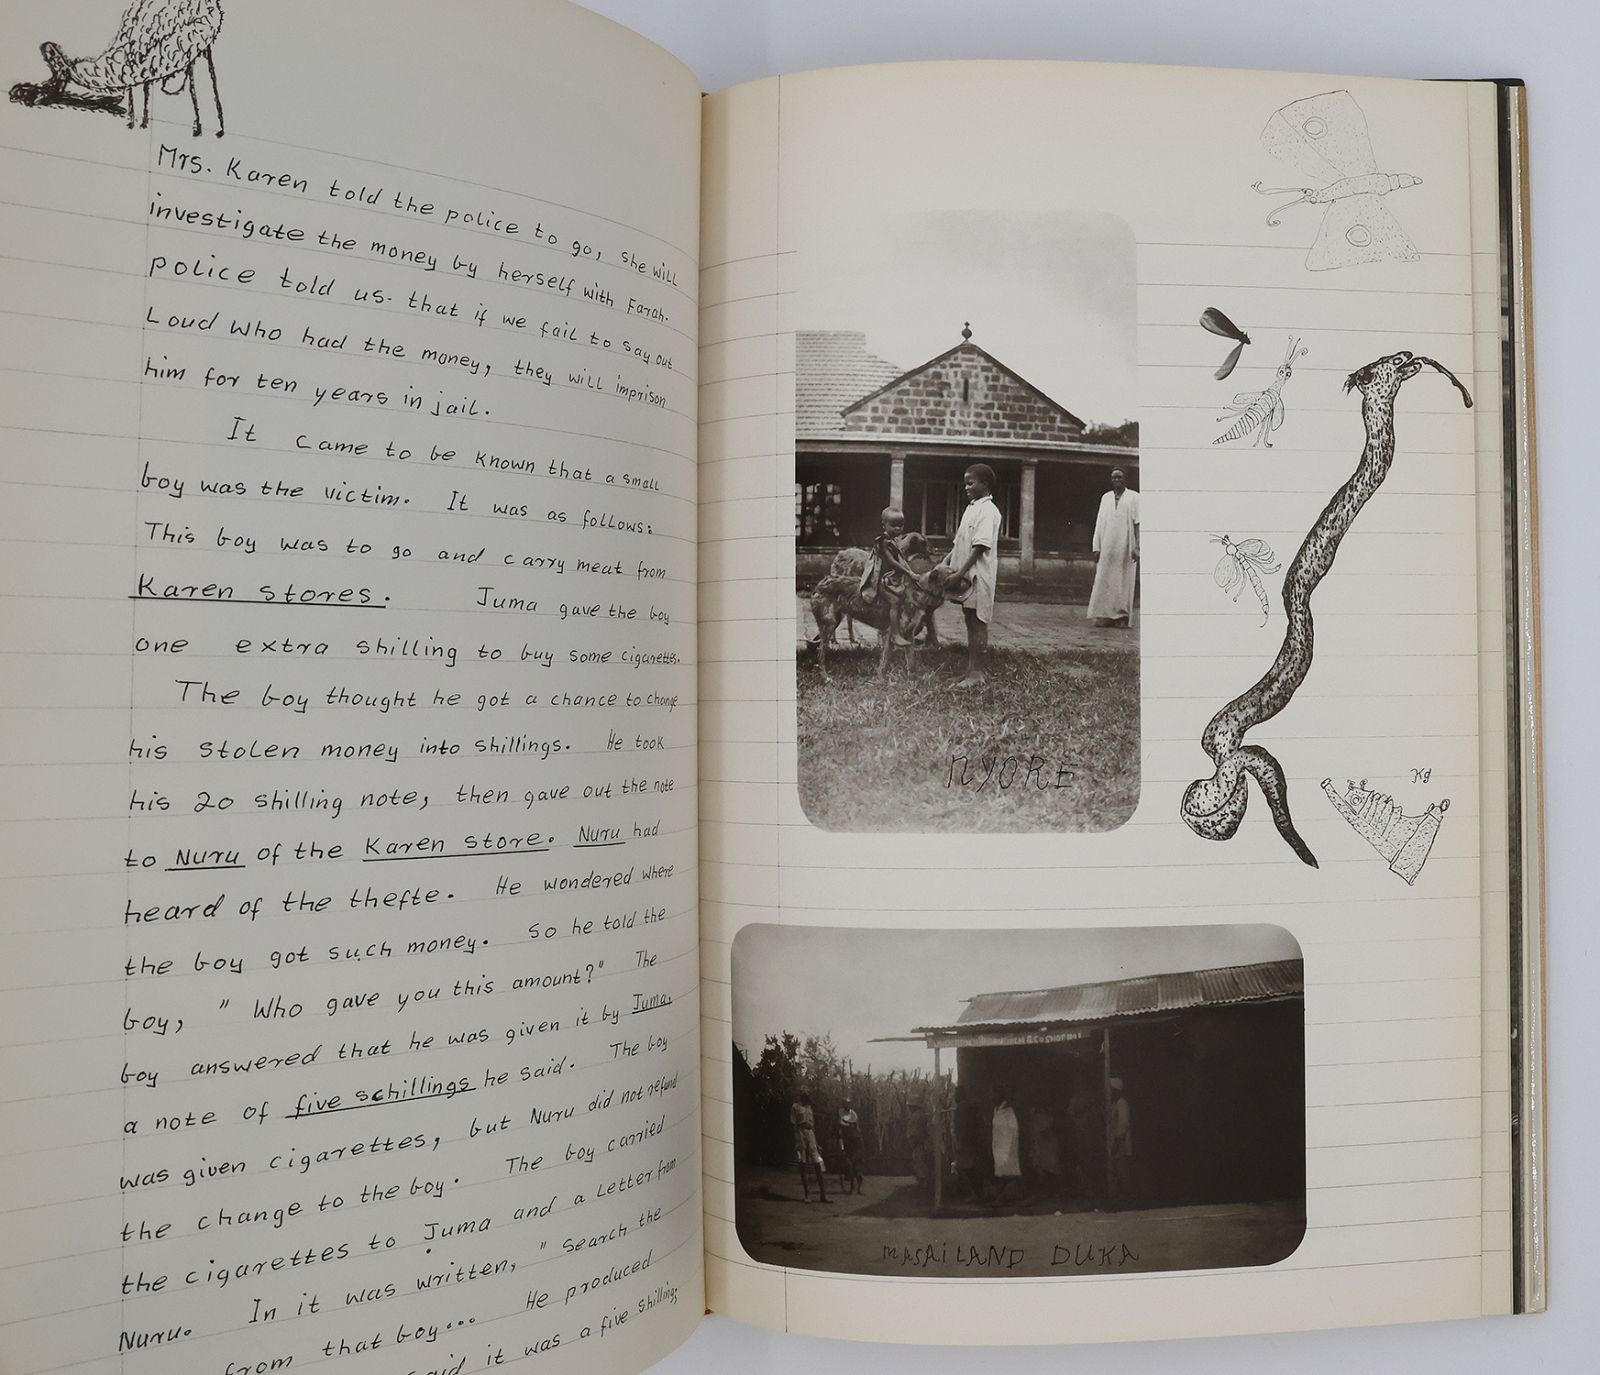 Mrs. Karen told the police to go, she will
investigate the money by herself with Farah.
police told us. that if we fail to say out
Loud who had the money, they will imprison
him for ten years in jail.
It came to be known that a small
boy was the victim. It was as follows:
This boy was to go and carry meat from
Karen stores. Juma gave the boy
one extra shilling to buy some cigarettes.
The boy thought he got a chance to change
his stolen money into shillings. He took
his 20 shilling note, then gave out the note
to Nuru of the Karen store. Nuru had
heard of the thefte. He wondered where
the boy got such money. So he told the
boy, "Who gave you this amount?" The
boy answered that he was given it by Juma.
a note of five schillings he said. The boy
was given cigarettes, but Nuru did not refund
the change to the boy. The boy carried
the cigarettes to Juma and a Letter from
Nuru. In it was written, "Search the
from that boy... He produced
said it was a five shilling;
NYORE
Kg
MASAILAND DUKA